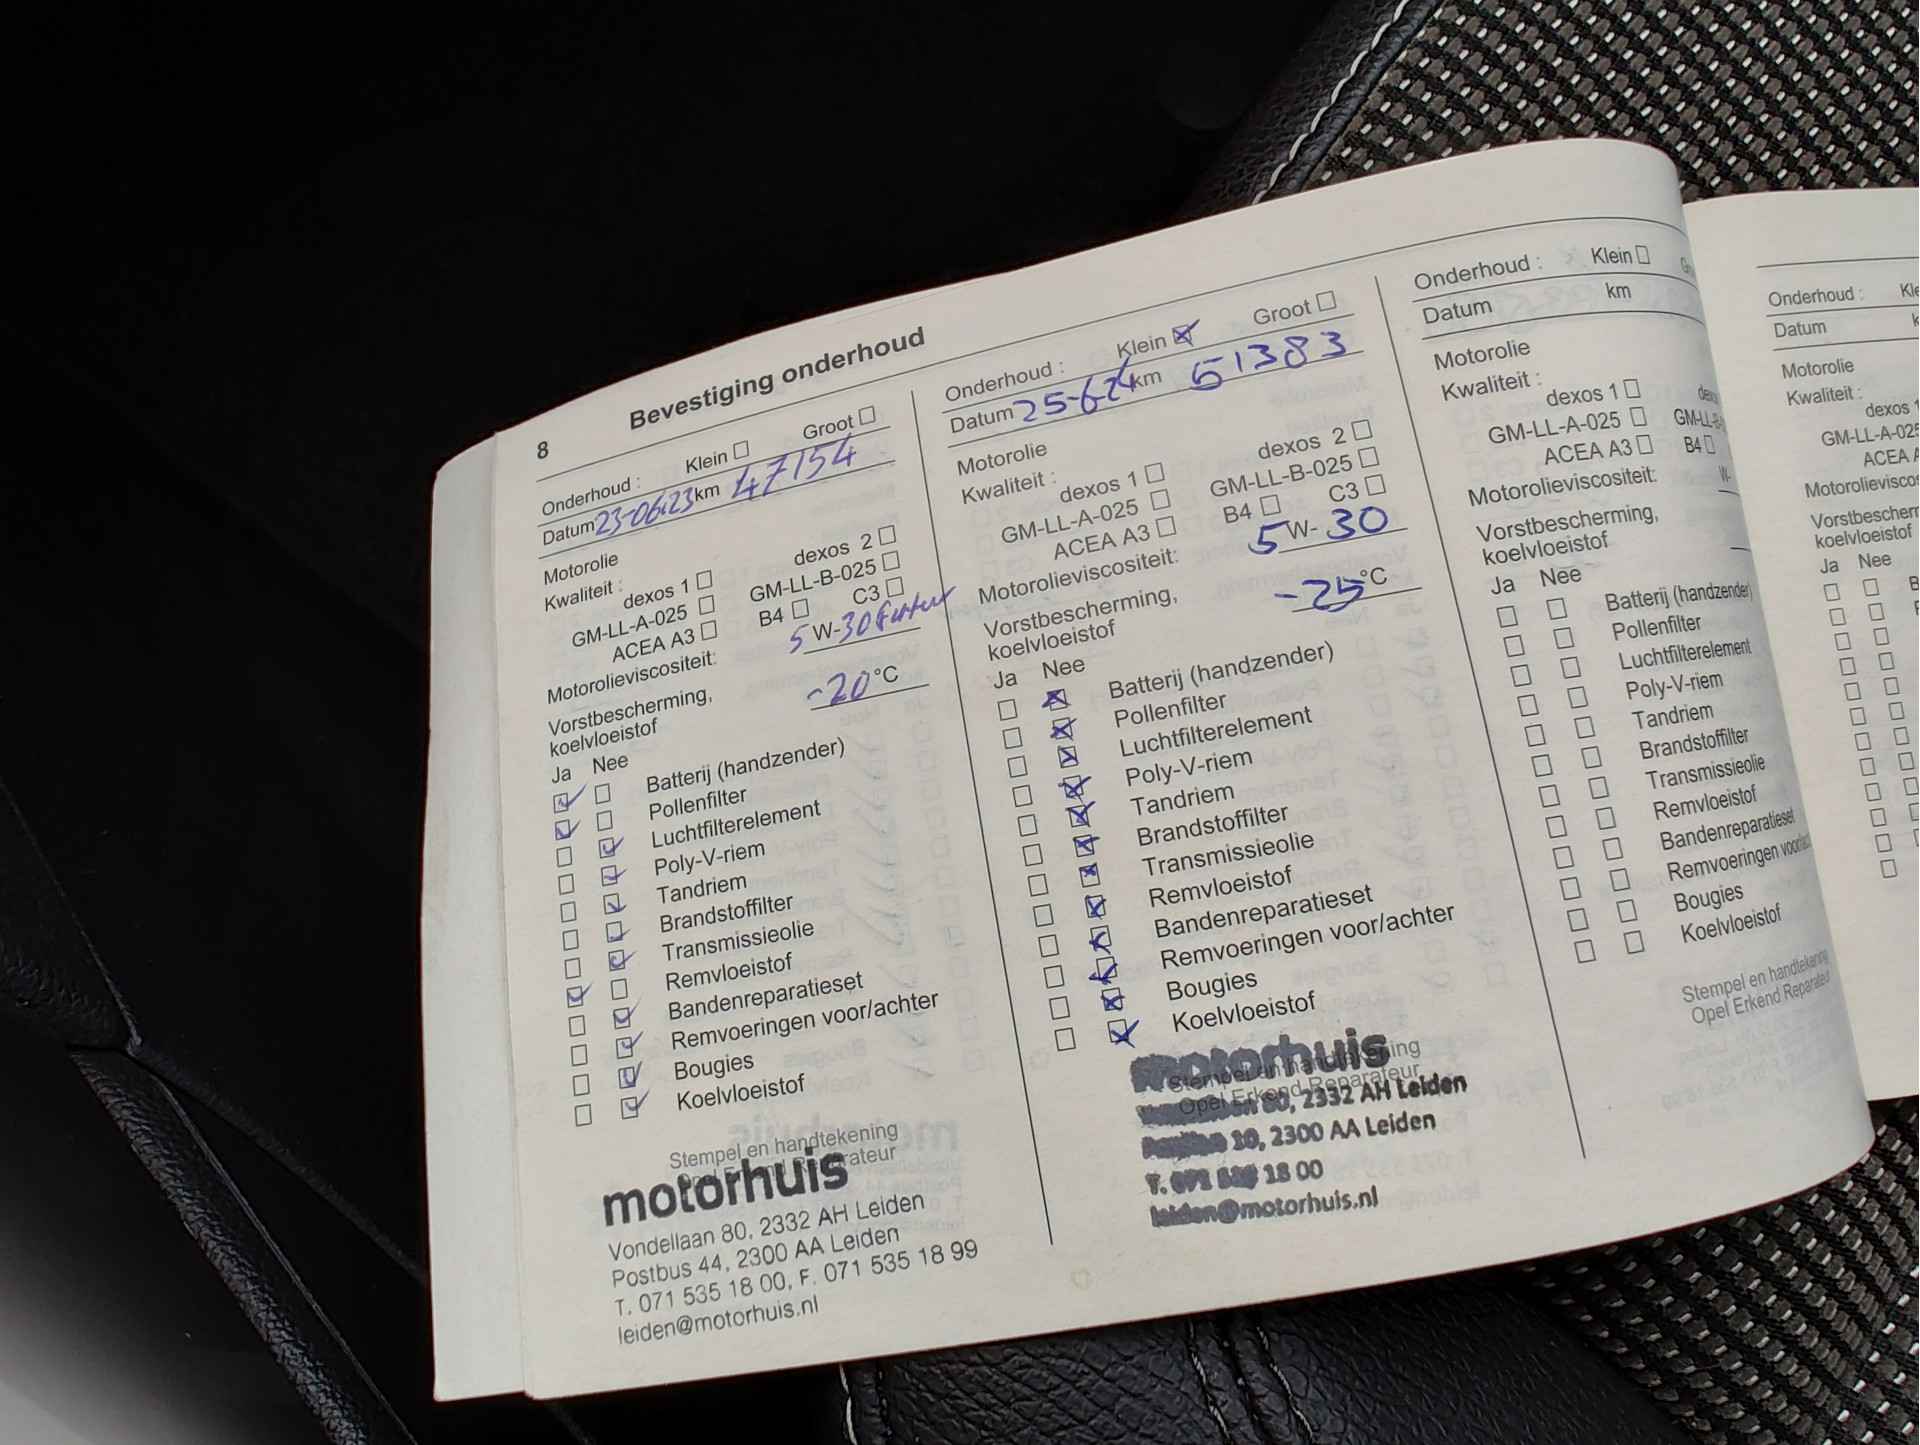 8 Bevestiging onderhoud
Onderhoud : Klein Groot
Datum 23-06-23 km 47154
Motorolie
Kwaliteit : dexos 1 dexos 2
GM-LL-A-025 GM-LL-B-025
ACEA A3 B4 C3
Motorolieviscositeit: 5 W-30
Vorstbescherming,
koelvloeistof -20 °C
Ja Nee
Batterij (handzender)
Pollenfilter
Luchtfilterelement
Poly-V-riem
Tandriem
Brandstoffilter
Transmissieolie
Remvloeistof
Bandenreparatieset
Remvoeringen voor/achter
Bougies
Koelvloeistof
Stempel en handtekening
Opel Erkend Reparateur
motorhuis
Vondellaan 80, 2332 AH Leiden
Postbus 44, 2300 AA Leiden
T. 071 535 18 00, F. 071 535 18 99
leiden@motorhuis.nl
Onderhoud : Klein Groot
Datum 25-6-24 km 51383
Motorolie
Kwaliteit : dexos 1 dexos 2
GM-LL-A-025 GM-LL-B-025
ACEA A3 B4 C3
Motorolieviscositeit: 5 W-30
Vorstbescherming,
koelvloeistof -25 °C
Ja Nee
Batterij (handzender)
Pollenfilter
Luchtfilterelement
Poly-V-riem
Tandriem
Brandstoffilter
Transmissieolie
Remvloeistof
Bandenreparatieset
Remvoeringen voor/achter
Bougies
Koelvloeistof
Stempel en handtekening
Opel Erkend Reparateur
motorhuis
80, 2332 AH Leiden
2300 AA Leiden
T. 071 18 00
leiden@motorhuis.nl
Onderhoud : Klein
Datum km
Motorolie
Kwaliteit : dexos 1
GM-LL-A-025 GM-LL-B-
ACEA A3 B4
Motorolieviscositeit: W-
Vorstbescherming,
koelvloeistof
Ja Nee
Batterij (handzender)
Pollenfilter
Luchtfilterelement
Poly-V-riem
Tandriem
Brandstoffilter
Transmissieolie
Remvloeistof
Bandenreparatieset
Remvoeringen
Bougies
Koelvloeistof
Stempel en handtekening
Opel Erkend Reparateur
Onderhoud :
Datum
Motorolie
Kwaliteit :
dexos 1
GM-LL-A-025
ACEA
koelvloeistof
Ja Nee